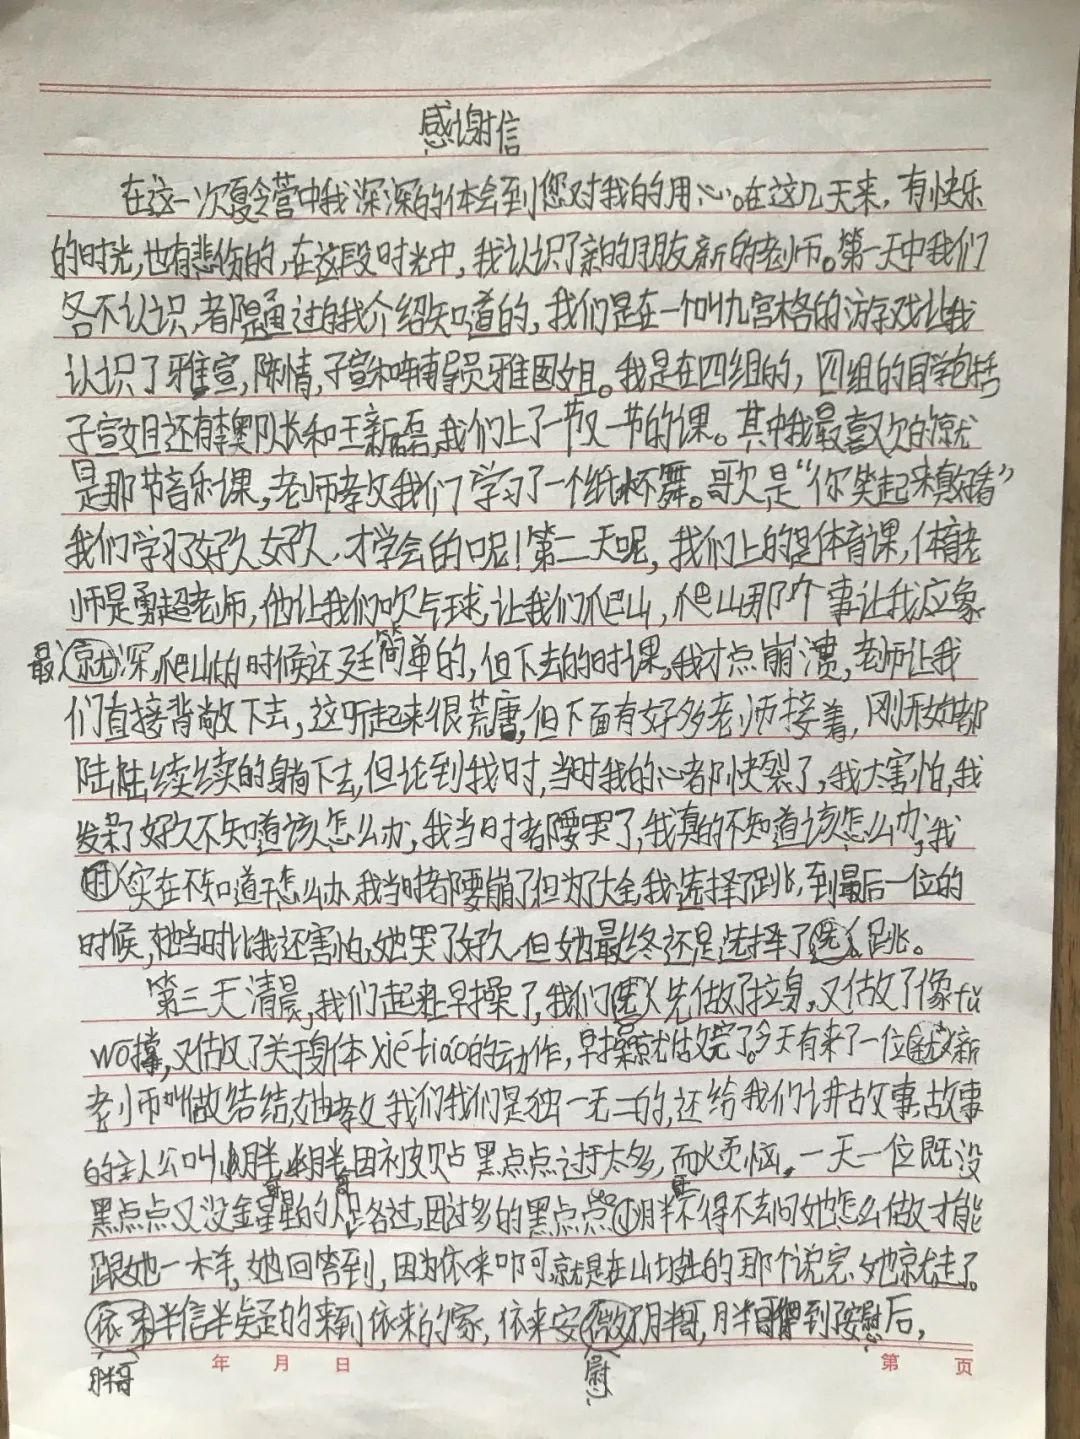 感谢信
在这一次夏令营中我深深的体会到您对我的用心。在这几天来，有快乐
的时光，也有悲伤的，在这段时光中，我认识了新的朋友新的老师。第一天中我们
各不认识，都是通过的我介绍知道的，我们是在一个叫九宫格的游戏让我
认识了雅宣，陈情，子宣和辅导员雅囡姐。我是在四组的，四组的同学包括
子宣姐还有李奥队长和王新磊，我们上了一节又一节的课。其中我最喜欢的就
是那节音乐课，老师教我们学习了一个纸杯舞。歌是“你笑起来真好看”
我们学习了好久好久，才学会的呢！第二天呢，我们上的是体育课，体育老
师是勇超老师，他让我们吹气球，让我们爬山，爬山那个事让我应象
最深，爬山的时候还廷简单的，但下去的时课，我才点崩溃，老师让我
们直接背敞下去，这听起来很荒唐，但下面有好多老师接着，刚开始都
陆陆续续的躺下去，但论到我时，当时我的心都快裂了，我太害怕，我
发呆了好久不知道该怎么办，我当时都要哭了，我真的不知道该怎么办，我
实在不知道怎么办，我当时都要崩了但为了大全，我选择了跳，到最后一位的
时候，她当时比我还害怕，她哭了好久，但她最终还是选择了跳。
第三天清晨，我们起来早操了，我们先做了拉身，又做了像fǔ
wò撑，又做了关于身体xiétiáo的动作，早操就做完了。今天有来了一位新
老师叫做结结，她教我们我们是独一无二的，还给我们讲古故事，故事
的主人公叫胖哥，胖哥因被贴黑点点过于太多，而烦恼，一天一位既没
黑点点又没金星星的人路过，因过多的黑点点，胖哥不得不去问她怎么做才能
跟她一样，她回答到，因为依来吖可，就是在山坡的那个说完她就走了。
胖哥半信半疑的来到依来的家，依来安慰胖哥，胖哥得到了安慰后，
年 月 日 第 页